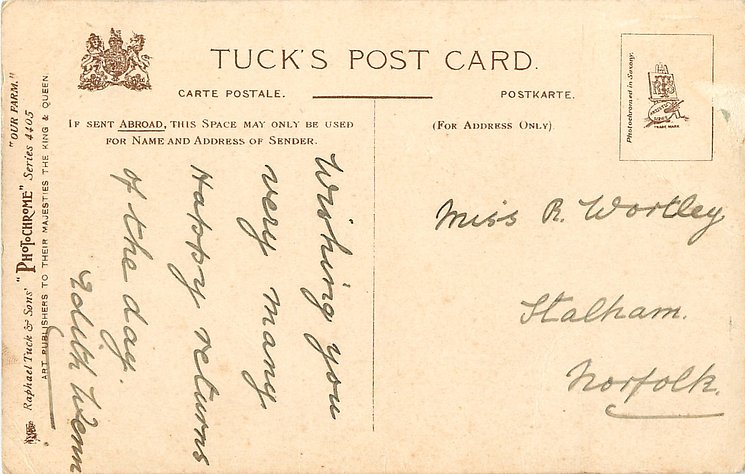 TUCK'S POST CARD.
CARTE POSTALE.
POSTKARTE.
IF SENT ABROAD, THIS SPACE MAY ONLY BE USED
FOR NAME AND ADDRESS OF SENDER.
(FOR ADDRESS ONLY)
Photochromed in Saxony.
TRADE MARK
"OUR FARM."
Raphael Tuck & Sons' "PHOTOCHROME" Series 4405
ART PUBLISHERS TO THEIR MAJESTIES THE KING & QUEEN.
Wishing you
very many
Happy returns
of the day.
Edith Wenn
Miss R. Wortley
Stalham.
Norfolk.